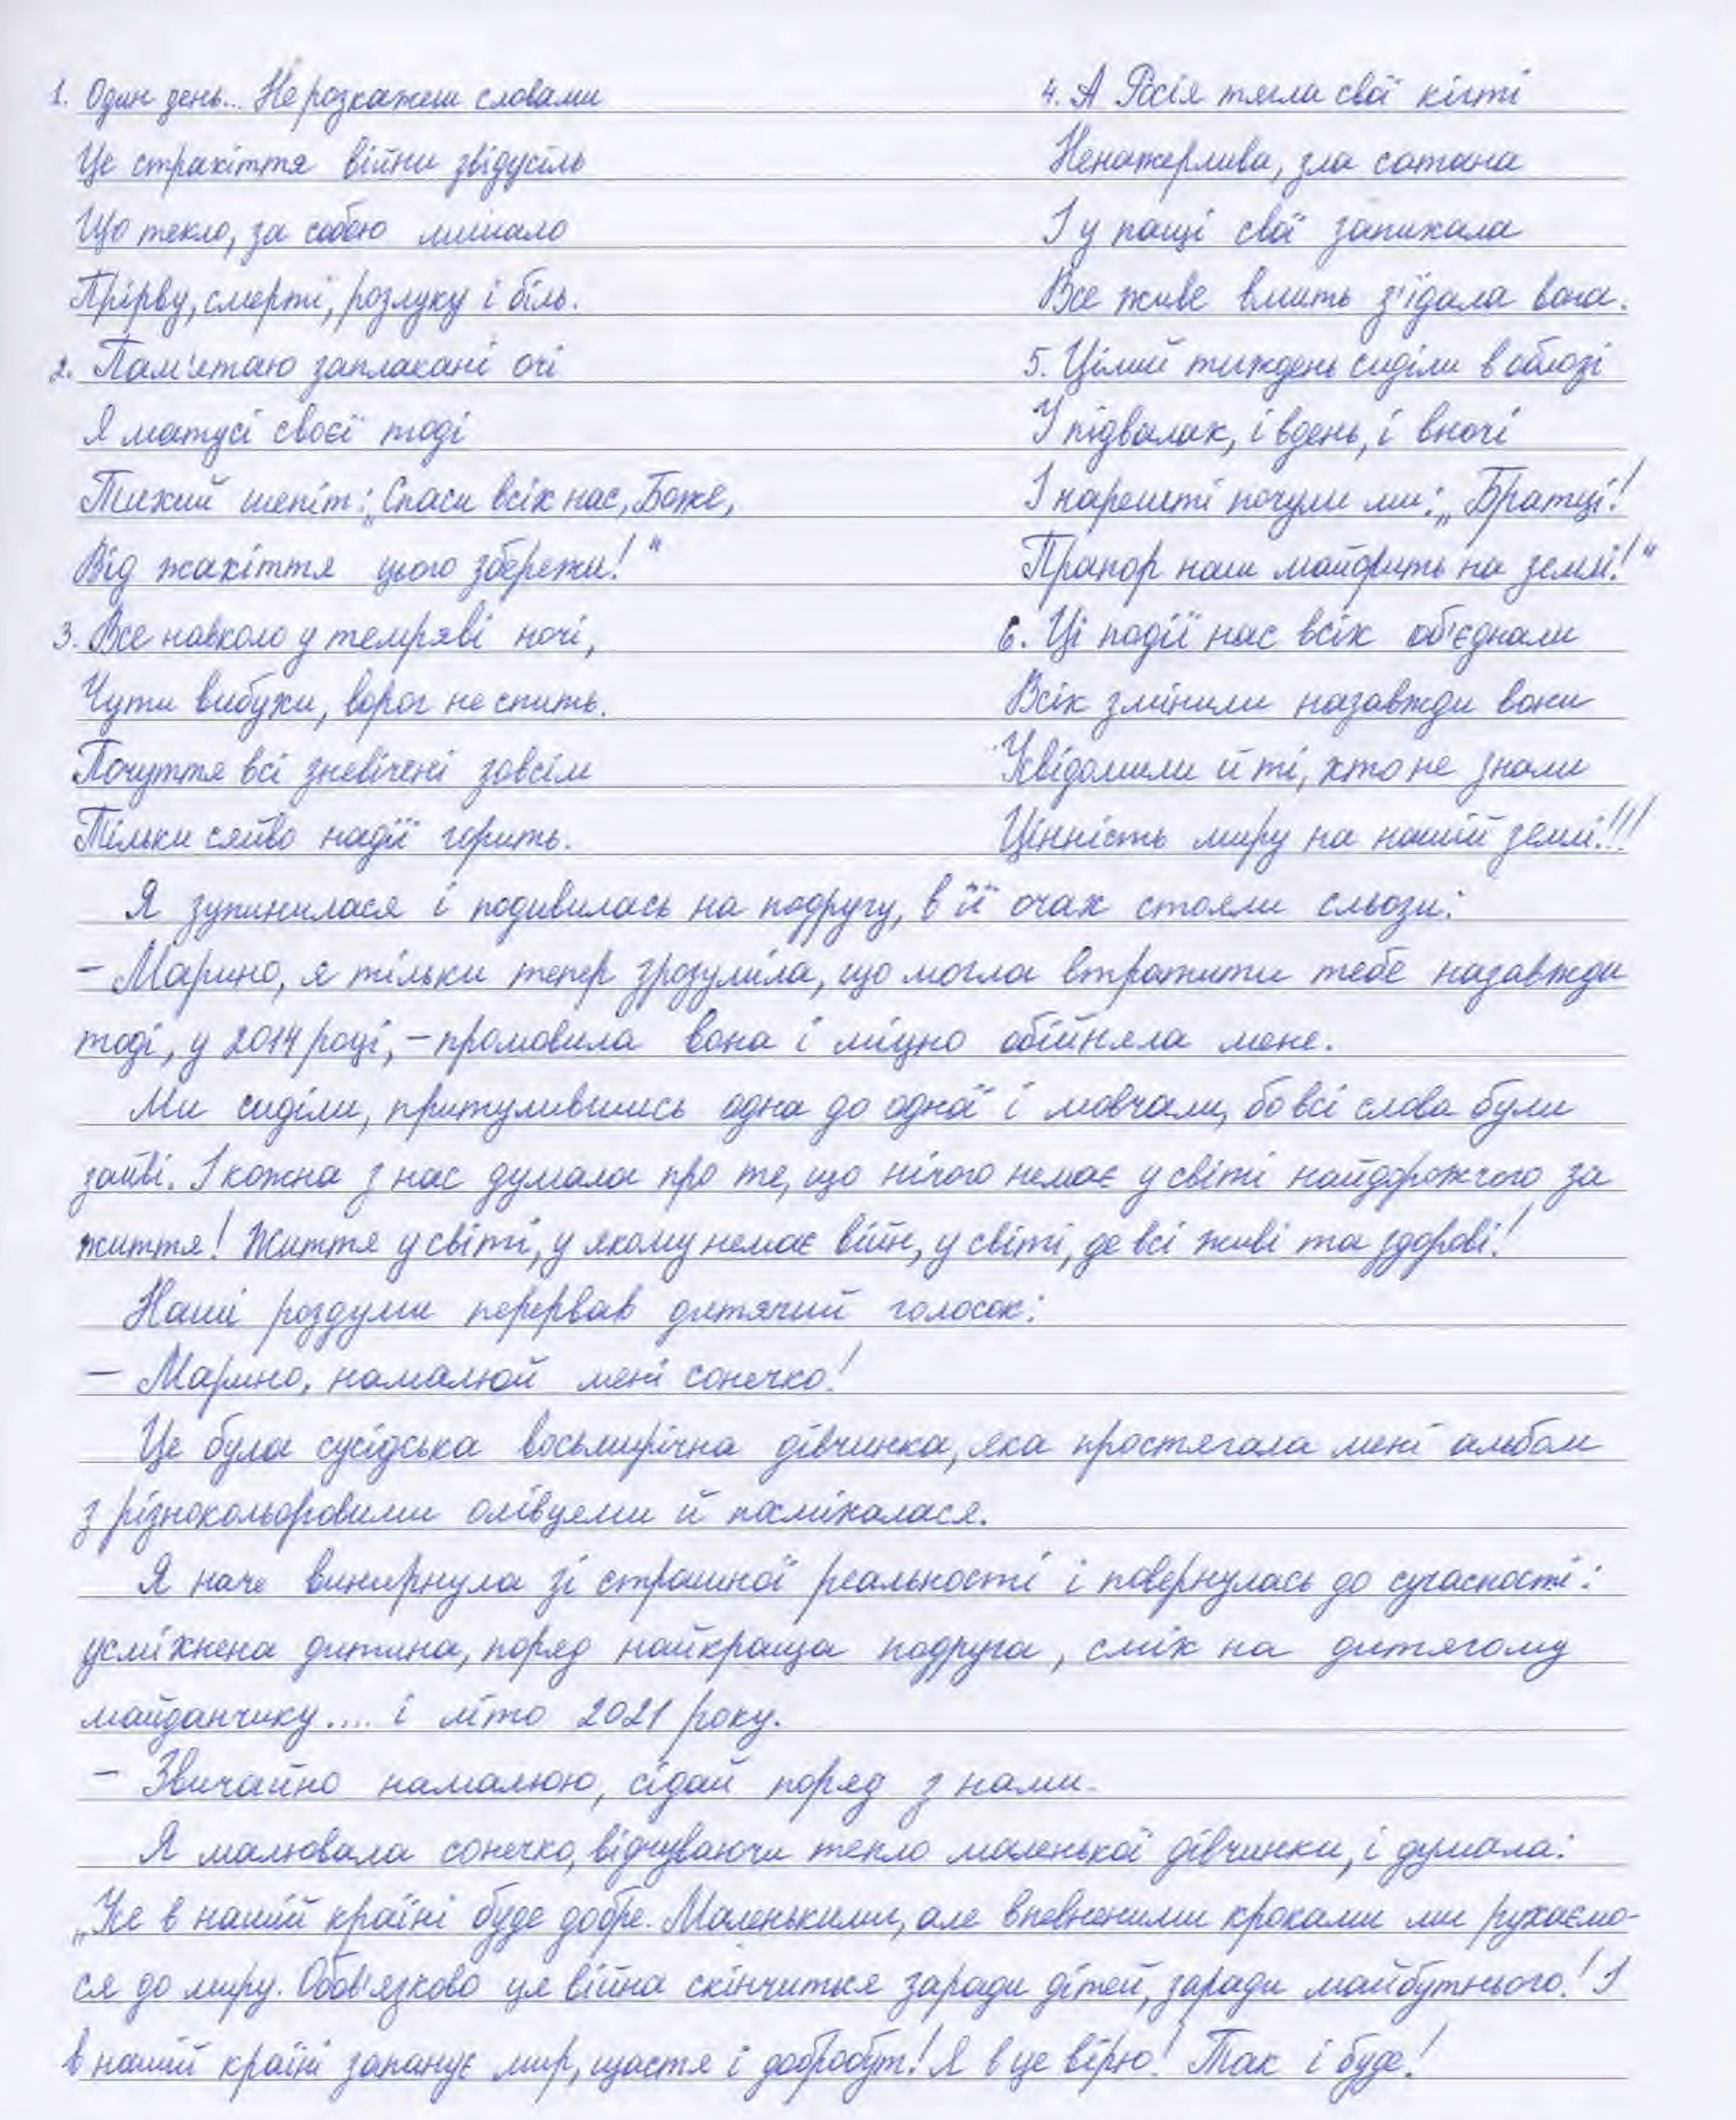 1. Один день... Не розкажеш словами
Це страхіття війни звідусіль
Що текло, за собою лишало
Прірву, смерті, розлуку і біль.
2. Пам'ятаю заплакані очі
Я матусі своєї тоді
Тихий шепіт: „Спаси всіх нас, Боже,
Від жахіття цього збережи!"
3. Все навколо у темряві ночі,
Чути вибухи, ворог не спить.
Почуття всі знівічені зовсім
Тільки сяйво надії горить.
4. А Росія тягла свої кігті
Ненажерлива, зла сатана
І у пащі свої запихала
Все живе вмить з'їдала вона.
5. Цілий тиждень сиділи в облозі
У підвалах, і вдень, і вночі
І нарешті почули ми: „Братці!
Прапор наш майорить на землі!"
6. Ці події нас всіх об'єднали
Всіх змінили назавжди вони
Усвідомили й ті, хто не знали
Цінність миру на нашій землі!!!
Я зупинилася і подивилась на подругу, в її очах стояли сльози:
– Марино, я тільки тепер зрозуміла, що могла втратити тебе назавжди
тоді, у 2014 році, – промовила вона і міцно обійняла мене.
Ми сиділи, притулившись одна до одної і мовчали, бо всі слова були
зайві. І кожна з нас думала про те, що нічого немає у світі найдорожчого за
життя! Життя у світі, у якому немає війн, у світі, де всі живі та здорові!
Наші роздуми перервав дитячий голосок:
– Марино, намалюй мені сонечко!
Це була сусідська восьмирічна дівчинка, яка простягала мені альбом
з різнокольоровими олівцями й посміхалася.
Я наче винирнула зі страшної реальності і повернулась до сучасності:
усміхнена дитина, поряд найкраща подруга, сміх на дитячому
майданчику.... і літо 2021 року.
– Звичайно намалюю, сідай поряд з нами.
Я малювала сонечко, відчуваючи тепло маленької дівчинки, і думала:
„Усе в нашій країні буде добре. Маленькими, але впевненими кроками ми рухаємо-
ся до миру. Обов'язково ця війна скінчиться заради дітей, заради майбутнього! І
в нашій країні запанує мир, щастя і добробут! Я в це вірю! Так і буде!